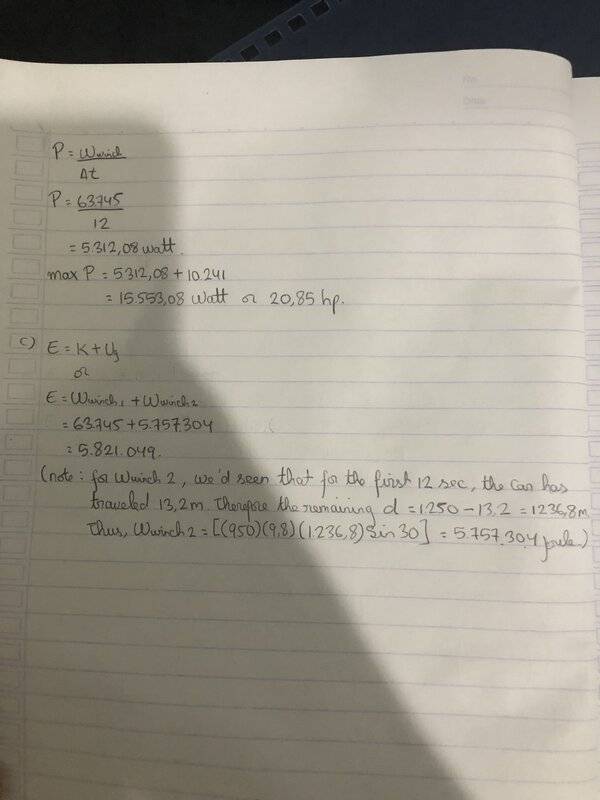 No.
Date
P = Wwinch
Δt
P = 63.745
12
= 5.312,08 watt.
max P = 5312,08 + 10.241
= 15.553,08 Watt or 20,85 hp.
c) E = K + Ug
or
E = Wwinch1 + Wwinch2
= 63.745 + 5.757.304
= 5.821.049.
(note : for Wwinch 2, we'd seen that for the first 12 sec, the car has
traveled 13,2m. Therefore the remaining d = 1250 - 13,2 = 1236,8m
Thus, Wwinch 2 = [(950)(9,8)(1.236,8) Sin 30] = 5.757.304 joule.)